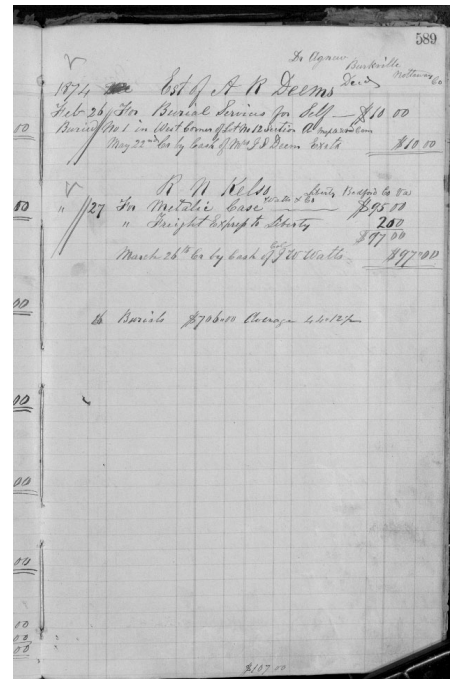 589
Dr Agnew Burkville
Nottoway Co
1874 Est of A R Deems Decd
Feb 26 For Burial Services for Self — $10 00
Buried No 1 in West Corner of Lot No 12 Section A
May 22nd Cr by Cash of Mrs J S Deem $10.00
R N Kelso Liberty Bedford Co Va
Watts & Co
" 27 For Metalic Case $95 00
" Freight Express to Liberty 2 00
$97 00
March 26th Cr by Cash of J W Watts $97.00
16 Burials $706.00 Average 44.12½
$107.00
00
00
00
00
00
00
00
00
00